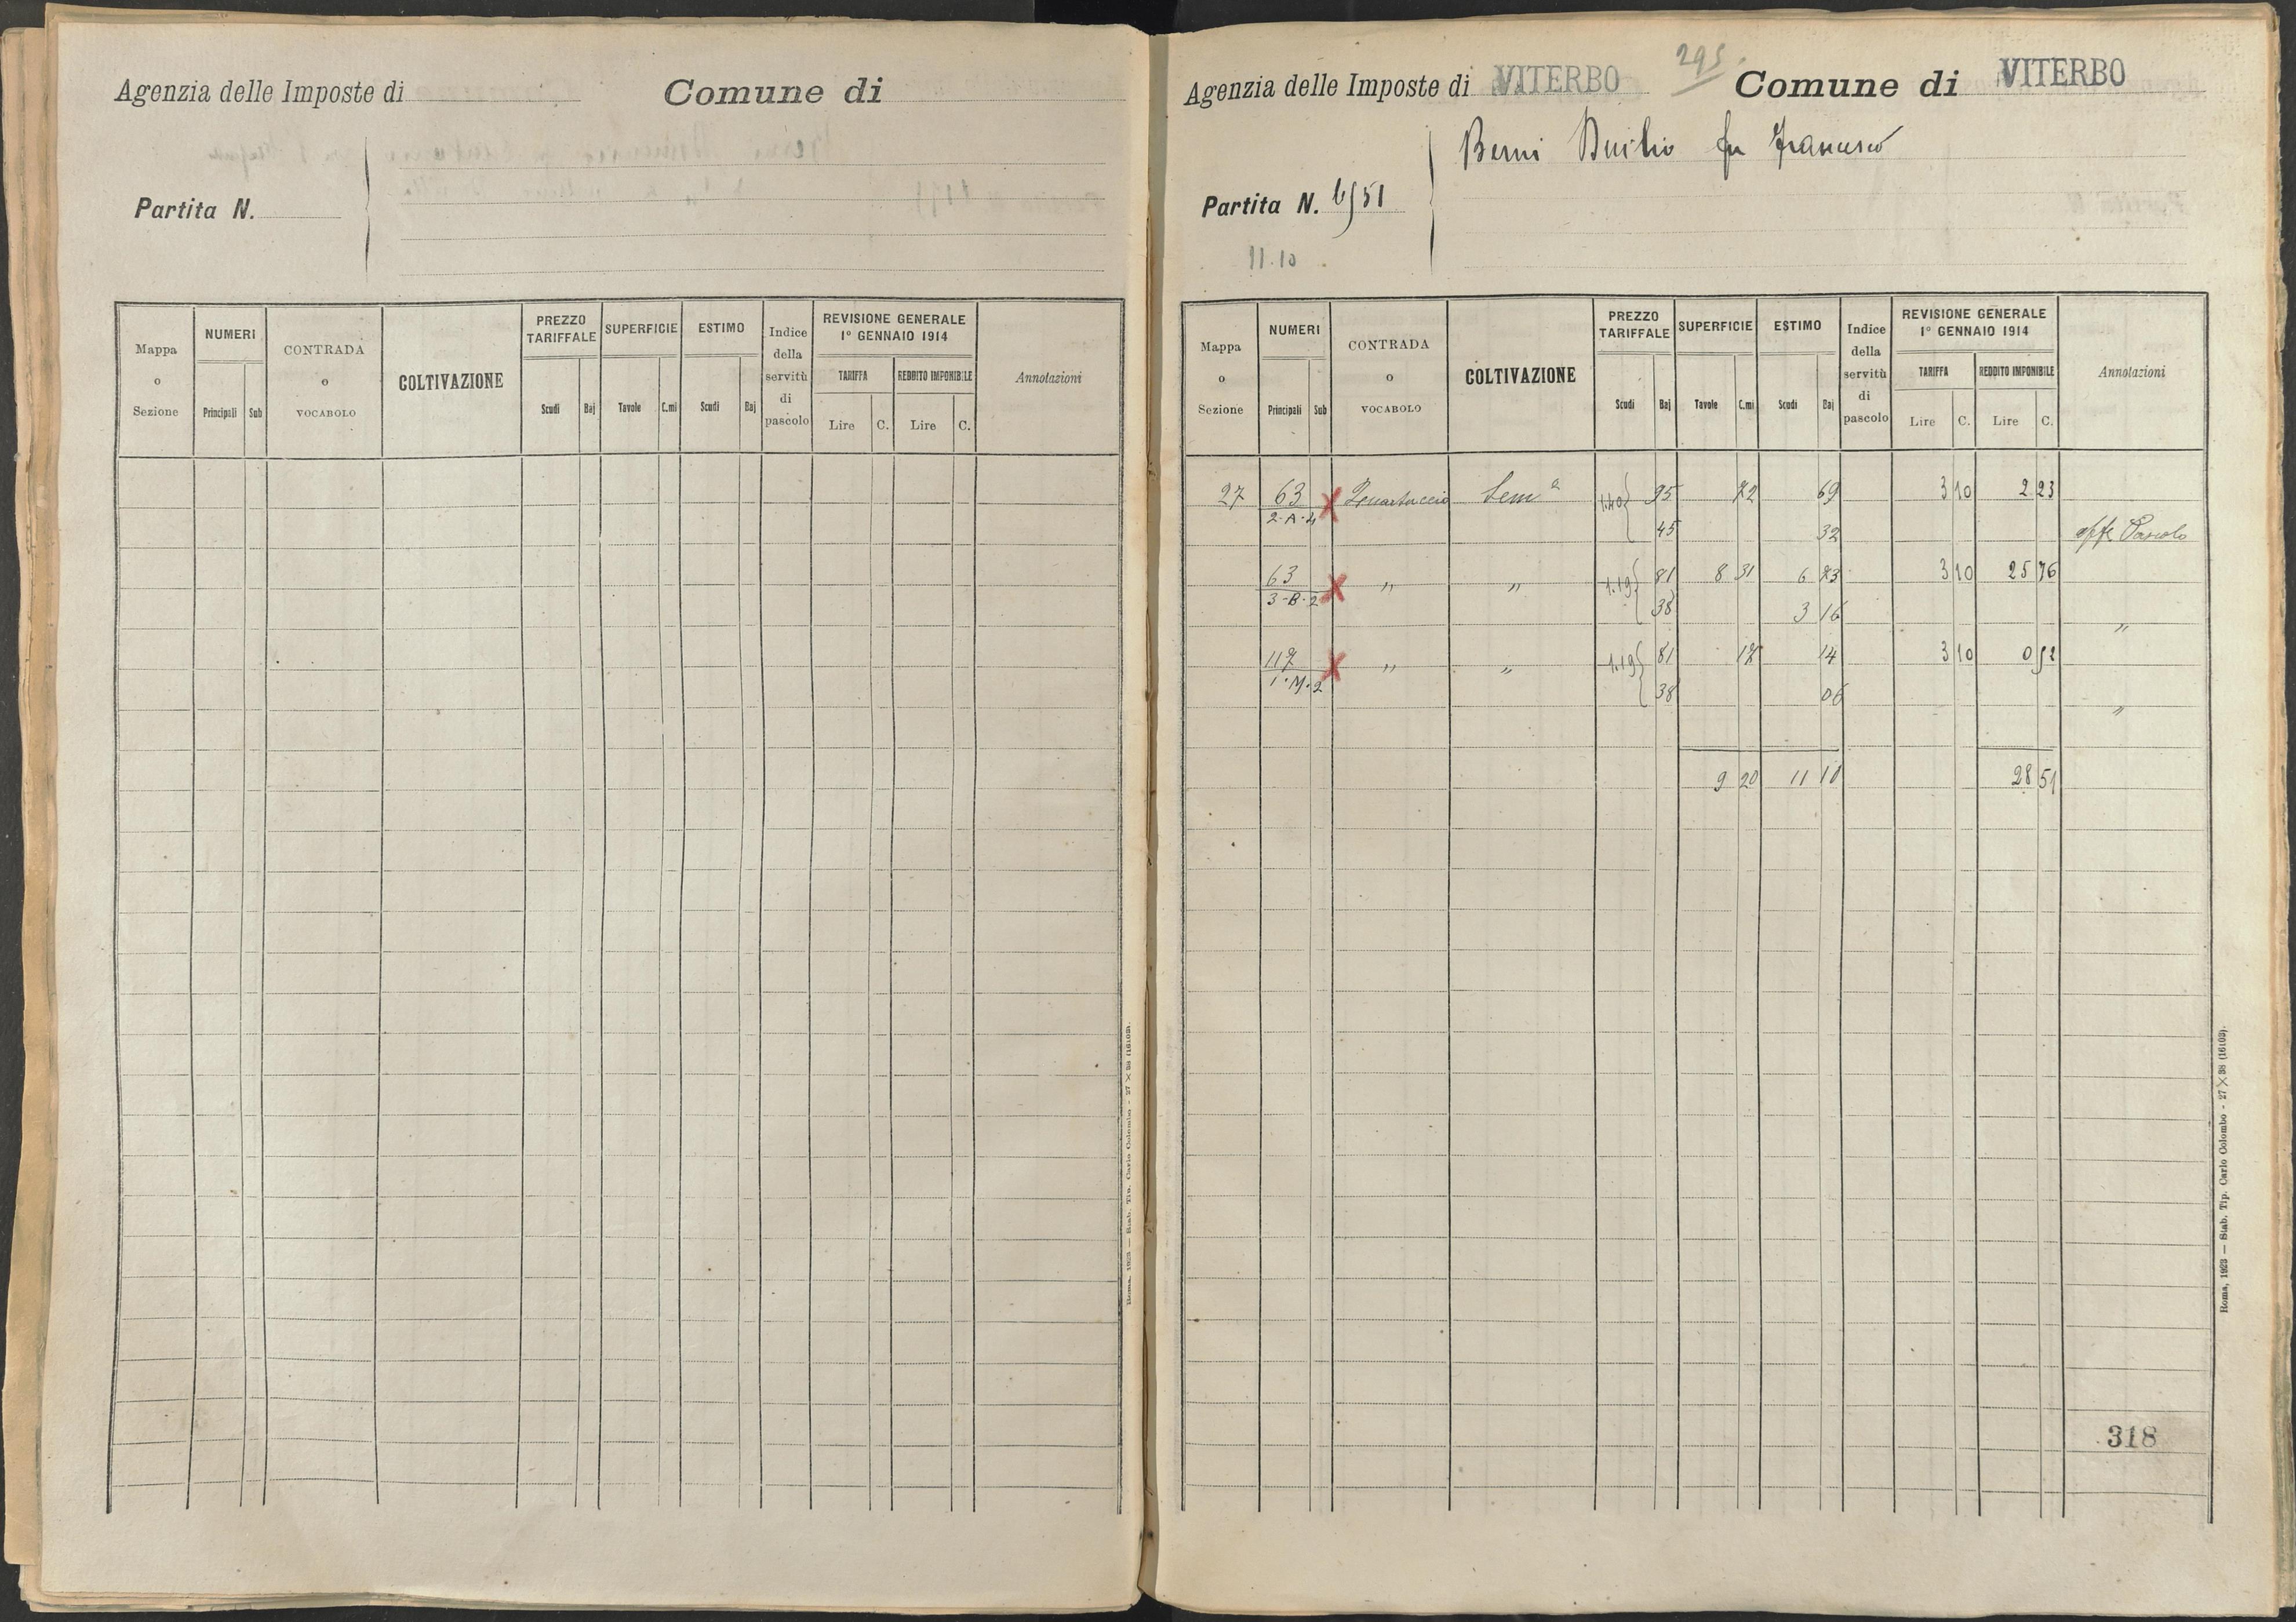 Agenzia delle Imposte di
Comune di
Partita N.
Mappa o Sezione
NUMERI
Principali Sub
CONTRADA o VOCABOLO
COLTIVAZIONE
PREZZO TARIFFALE
Scudi Baj
SUPERFICIE
Tavole C.mi
ESTIMO
Scudi Baj
Indice della servitù di pascolo
REVISIONE GENERALE
1º GENNAIO 1914
TARIFFA
Lire C.
REDDITO IMPONIBILE
Lire C.
Annotazioni
Roma, 1923 — Stab. Tip. Carlo Colombo - 27 × 38 (16103).
295
Agenzia delle Imposte di VITERBO Comune di VITERBO
Berni Duilio fu Francesco
Partita N. 6551
11.10
Mappa o Sezione
NUMERI
Principali Sub
CONTRADA o VOCABOLO
COLTIVAZIONE
PREZZO TARIFFALE
Scudi Baj
SUPERFICIE
Tavole C.mi
ESTIMO
Scudi Baj
Indice della servitù di pascolo
REVISIONE GENERALE
1º GENNAIO 1914
TARIFFA
Lire C.
REDDITO IMPONIBILE
Lire C.
Annotazioni
27 63 Semª 1.40 95 72 69 3 10 2 23
2-A-4 45 32 Pascolo
63 " " 1.19 81 8 31 6 73 3 10 25 76
3-B-2 38 3 16 "
117 " " 1.19 81 17 14 3 10 0 52
1-M-2 38 06 "
9 20 11 10 28 51
318
Roma, 1923 — Stab. Tip. Carlo Colombo - 27 × 38 (16103).